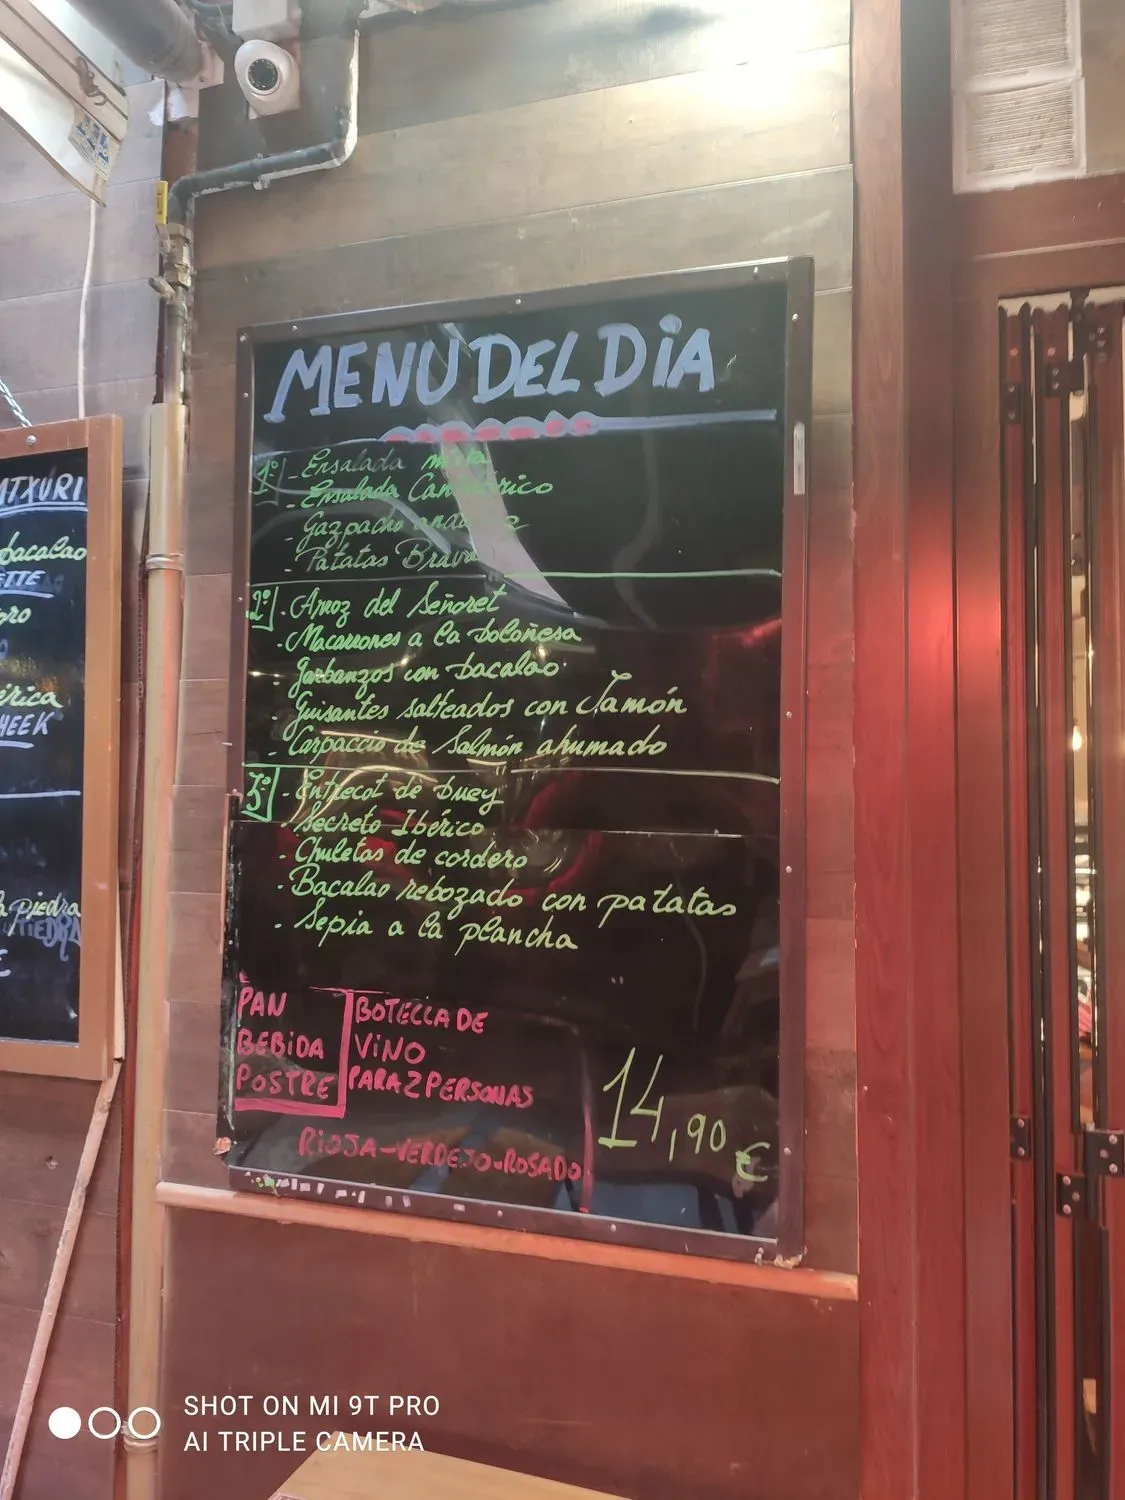 MENU DEL DiA
1º - Ensalada mixta
- Ensalada Cantábrico
- Gazpacho andaluz
- Patatas Bravas
2º - Arroz del Señoret
- Macarrones a la boloñesa
- Garbanzos con bacalao
- Guisantes salteados con Jamón
- Carpaccio de Salmón ahumado
3º - Entrecot de buey
- Secreto Ibérico
- Chuletas de cordero
- Bacalao rebozado con patatas
- Sepia a la plancha
PAN
BEBiDA
POSTRE
BOTELLA DE
ViNO
PARA 2 PERSONAS
RiOJA-VERDEJO-ROSADO
14,90 €
bacalao
HEEK
a piedra
PiEDRA
SHOT ON MI 9T PRO
AI TRIPLE CAMERA